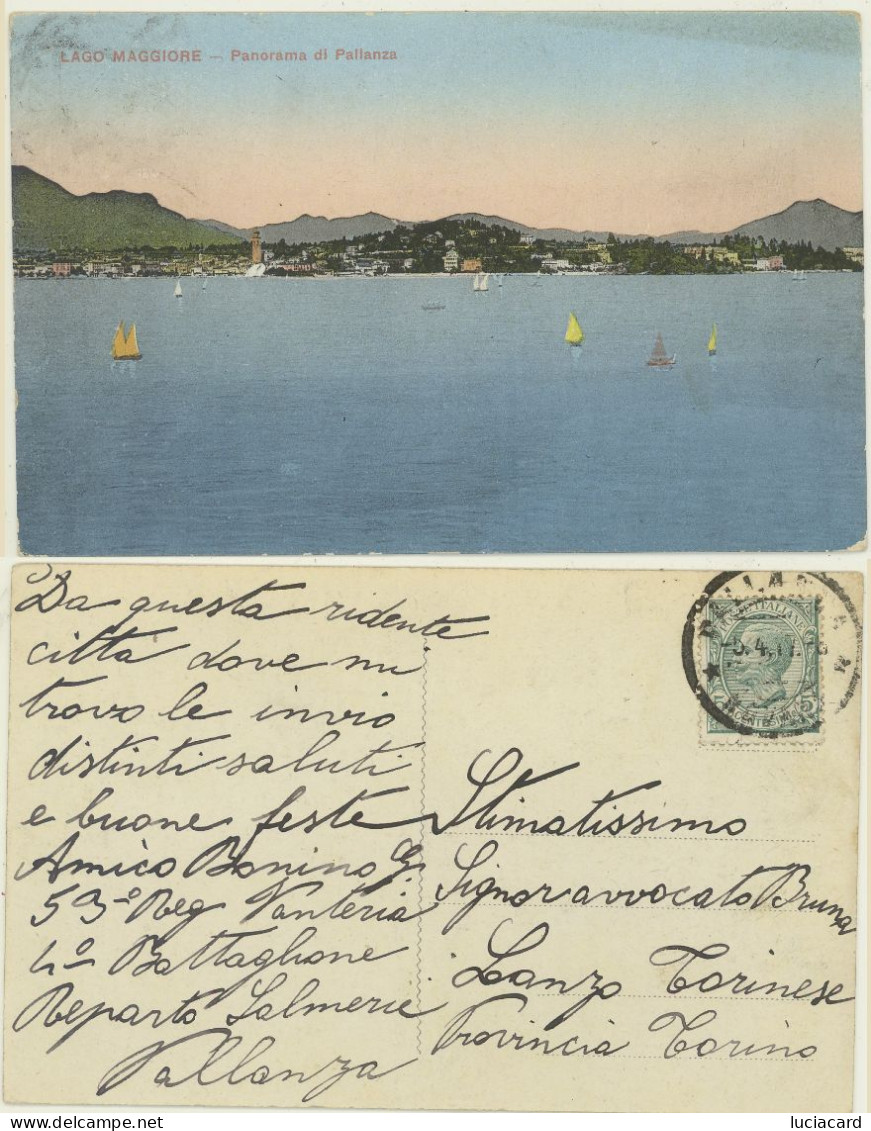 LAGO MAGGIORE — Panorama di Pallanza
Da questa ridente
città dove mi
trovo le invio
distinti saluti
e buone feste
Amico Bonino G.
53º Reg Fanteria
4º Battaglione
Reparto Salmerie
Pallanza
PALLANZA
-5.4.17.
POSTE ITALIANE
CENTESIMI 5
Stimatissimo
Signor avvocato Bruna
Lanzo Torinese
Provincia Torino
luciacard